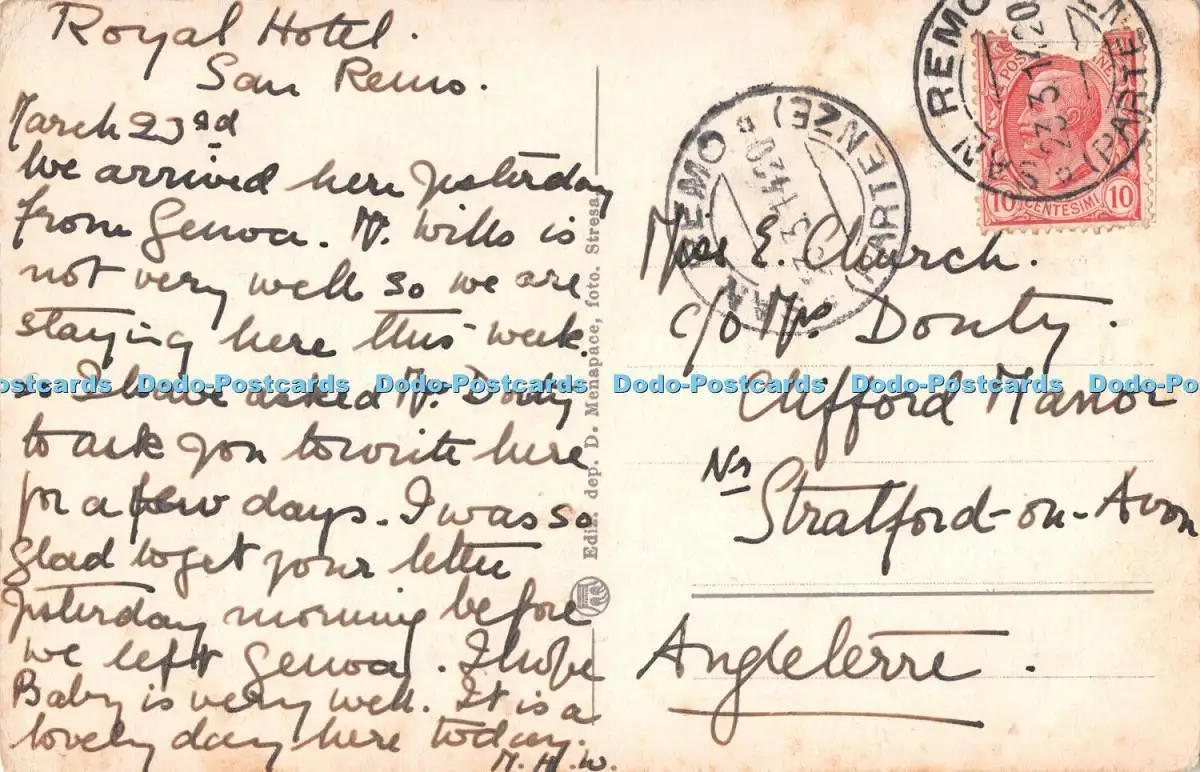 Royal Hotel.
San Remo.
March 23rd
We arrived here yesterday
from Genoa. Mr. Wills is
not very well so we are
staying here this week.
so I have asked Mrs. Douty
to ask you to write here
for a few days. I was so
glad to get your letter
yesterday morning before
we left Genoa. I hope
Baby is very well. It is a
lovely day here today.
M. H. W.
Ediz. dep. D. Menapace, foto. Stresa
Miss E. Church.
c/o Mrs Douty.
Clifford Manor
Nr
Stratford-on-Avon
Angleterre.
SAN REMO
(PARTENZE)
23.3.14.20
POSTE
10 CENTESIMI 10
SAN REMO
(PARTENZE)
23.3.14.20
Dodo-Postcards Dodo-Postcards Dodo-Postcards Dodo-Postcards Dodo-Postcards Dodo-Postcards